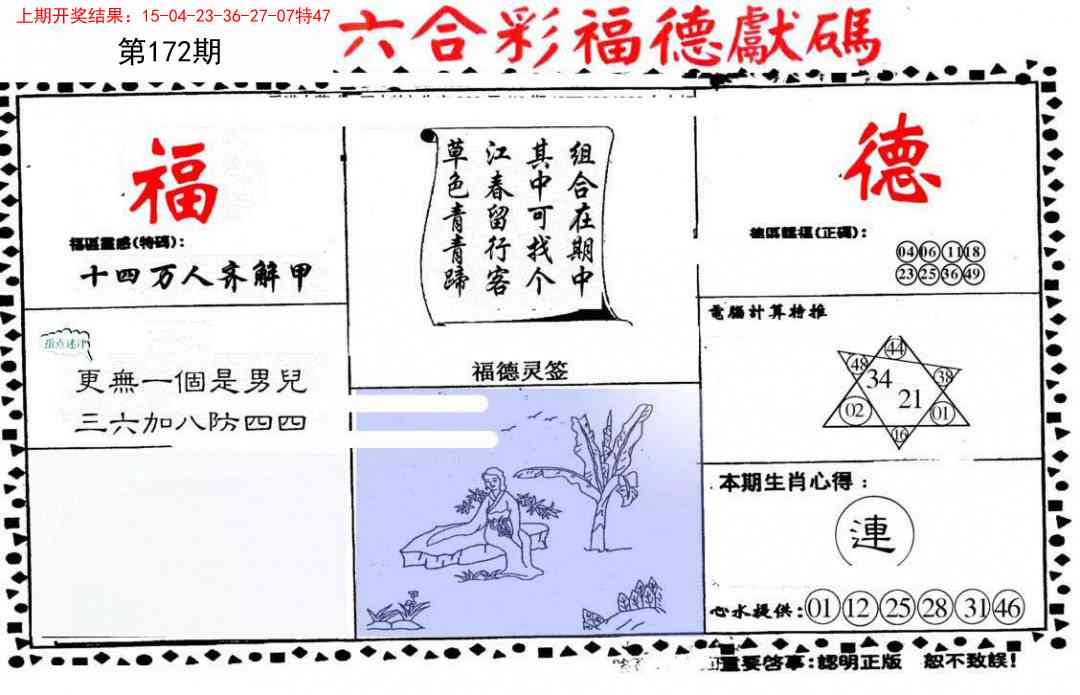 上期开奖结果：15-04-23-36-27-07特47
第172期
六合彩福德獻碼
福
福區靈感(特碼):
十四万人齐解甲
更無一個是男兒
三六加八防四四
组合在期中
其中可找个
江春留行客
草色青青蹄
福德灵签
德
(正碼):
04 06 11 18
23 25 36 49
電腦計算特推
44
48
34
38
21
02
01
16
本期生肖心得:
連
心水提供:01 12 25 28 31 46
重要啓事:認明正版 恕不致誤!